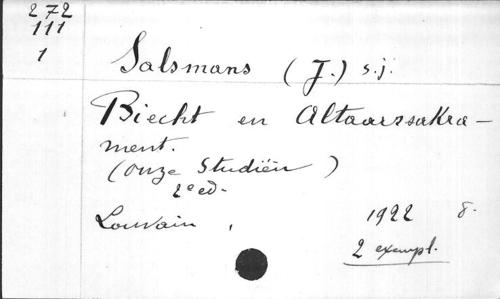 272
111
1
Salsmans (J.) s.j.
Biecht en Altaarssakra-
ment.
(Onze Studiën)
2e ed.
Louvain, 1922 8.
2 exempl.